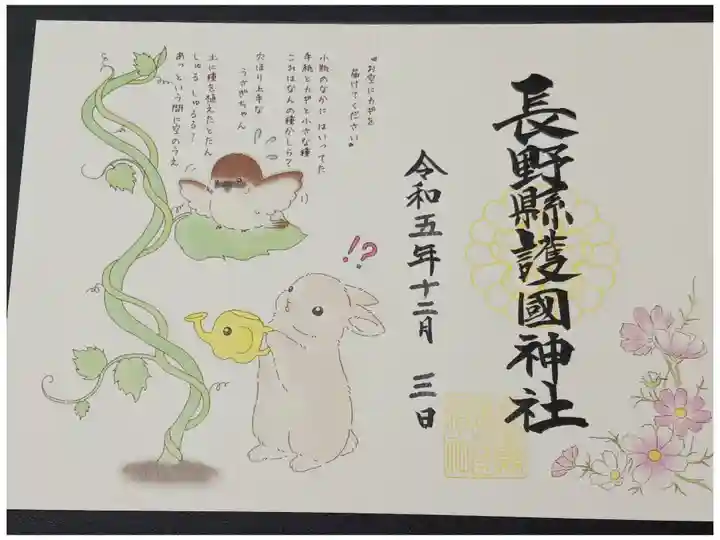 長野縣護國神社
令和五年十二月 三日
"お空にカギを
届けてください"
小瓶のなかに はいってた
手紙とカギと小さな種
これはなんの種かしら?
穴ほり上手な
うさぎちゃん
土に種を植えたとたん
しゅる しゅるる?
あっという間に空のうえ
!?